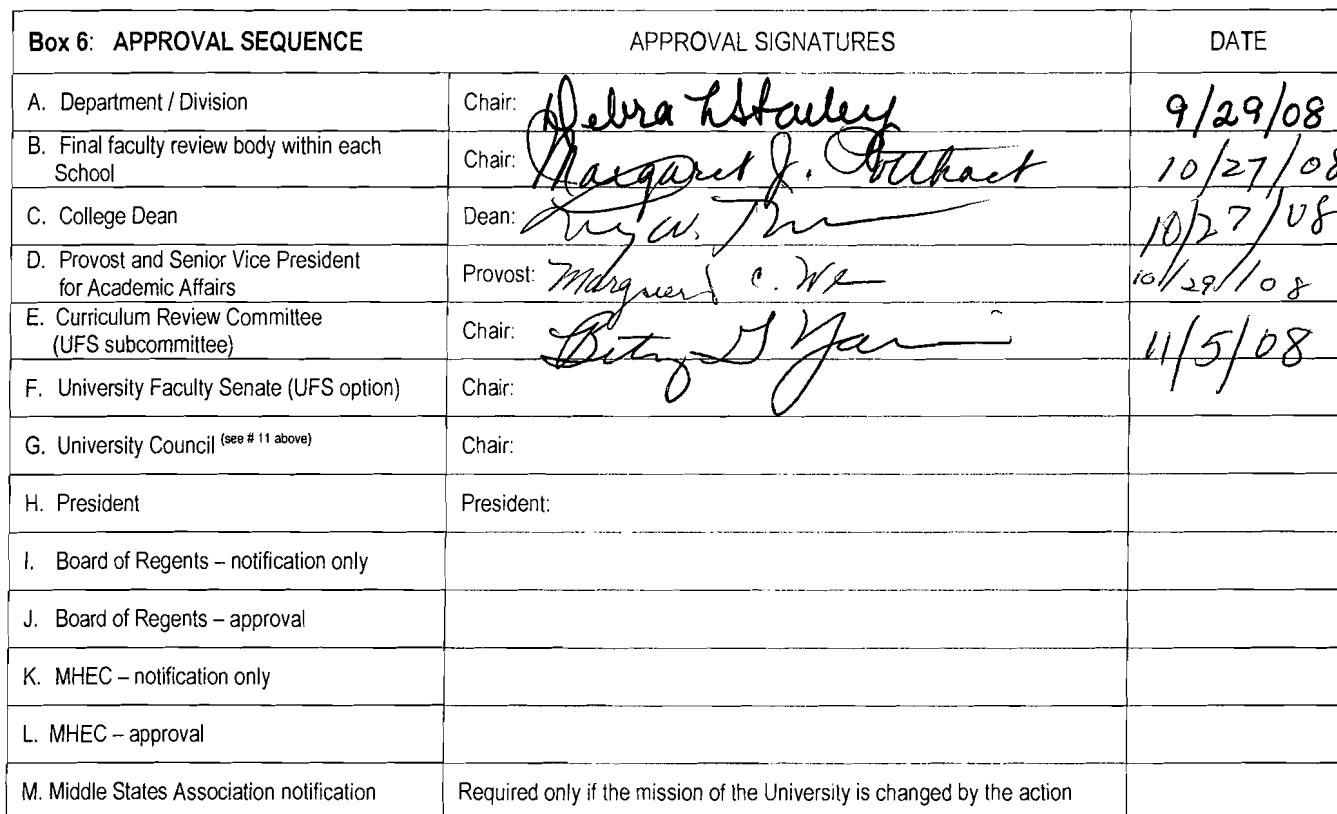 Box 6: APPROVAL SEQUENCE APPROVAL SIGNATURES DATE
A. Department / Division Chair: Debra L Stanley 9/29/08
B. Final faculty review body within each
School Chair: Margaret J. Potthast 10/27/08
C. College Dean Dean: W. 10/27/08
D. Provost and Senior Vice President
for Academic Affairs Provost: C. 10/29/08
E. Curriculum Review Committee
(UFS subcommittee) Chair: 11/5/08
F. University Faculty Senate (UFS option) Chair:
G. University Council (see # 11 above) Chair:
H. President President:
I. Board of Regents – notification only
J. Board of Regents – approval
K. MHEC – notification only
L. MHEC – approval
M. Middle States Association notification Required only if the mission of the University is changed by the action